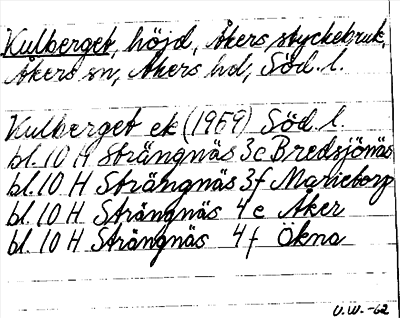 Kulberget, höjd, Åkers styckebruk,
Åkers sn, Åkers hd, Söd. l.
Kulberget ek (1969) Söd. l.
bl. 10 H Strängnäs 3e Bredsjönäs
bl. 10 H Strängnäs 3f Marietorp
bl. 10 H Strängnäs 4e Åker
bl. 10 H Strängnäs 4f Ökna
U.W. -62